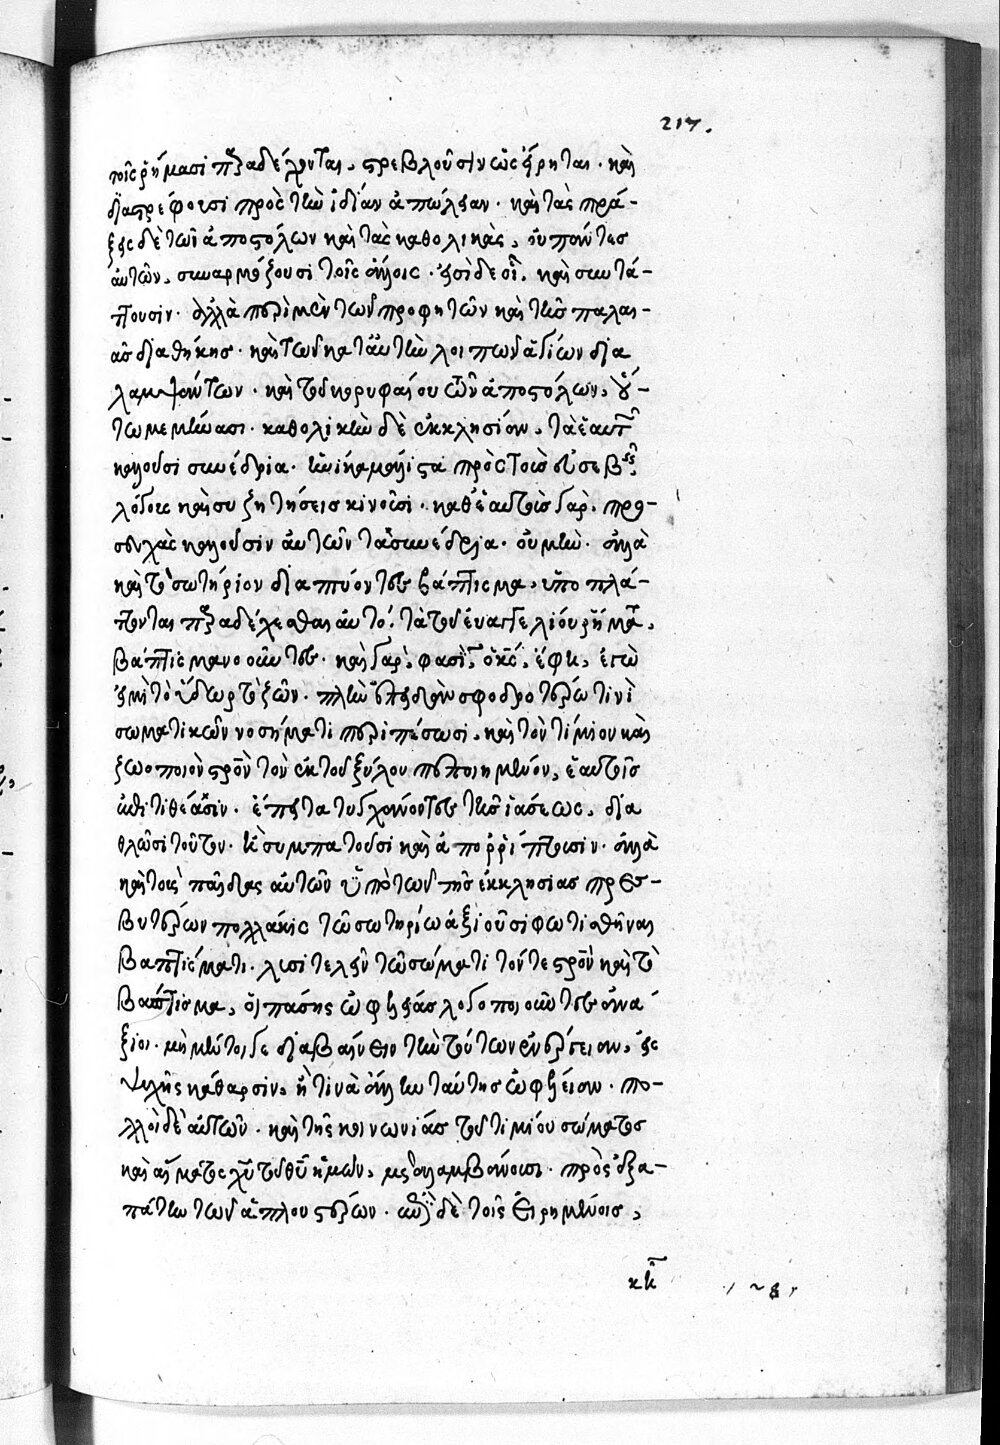 217.
τοῖς ῥήμασι παραδέχονται, στρεβλοῦσιν ὡς εἴρηται· καὶ
διαστρέφουσι πρὸς τὴν ἰδίαν ἀπώλειαν· καὶ τὰς πρά-
ξεις δὲ τῶν ἀποστόλων καὶ τὰς καθολικὰς, οὐ πάντες
αὐτῶν, συναρμόζουσι τοῖς ἄλλοις· εἰσὶ δὲ οἳ, καὶ συντά-
πτουσιν· ἀλλὰ περὶ μὲν τῶν προφητῶν καὶ τῆς παλαι-
ᾶς διαθήκης· καὶ τῶν κατ' αὐτὴν λοιπῶν ἁγίων δια
λαμψάντων· καὶ τοῦ κορυφαίου τῶν ἀποστόλων, οὕ-
τω μεμήνασι· καθολικὴν δὲ ἐκκλησίαν, τὰ ἑαυτῶν
καλοῦσι συνέδρια· ἡνίκα μάλιστα πρὸς τοὺς εὐσεβεῖς
λόγους καὶ συζητήσεις κινοῦσι· καθ' ἑαυτοὺς γὰρ, προσ-
ευχὰς καλοῦσιν αὐτῶν τὰ συνέδρια· οὐ μὴν· ἀλλὰ
καὶ τὸ σωτήριον διαπτύοντες βάπτισμα, ὑποπλά-
ττονται παραδέχεσθαι αὐτό· τὰ τοῦ εὐαγγελίου ῥήματα,
βάπτισμα νοοῦντες· καὶ γὰρ, φασὶν, ὁ κς, ἔφη, ἐγώ
εἰμι τὸ ὕδωρ τὸ ζῶν· πλὴν ἐπειδὰν σφοδροτέρω τινὶ
σωματικῶν νοσήματι περιπέσωσι, καὶ τὸν τίμιον καὶ
ζωοποιὸν σρὸν τὸν ἐκ τοῦ ξύλου πεποιημένον, ἑαυτοῖς
ἐπιτιθέασιν· ἔπειτα τυγχάνοντες τῆς ἰάσεως, δια
θλῶσι τοῦτον· ἢ συμπατοῦσι καὶ ἀπορρίπτουσιν· ἀλλὰ
καὶ τοὺς παῖδας αὐτῶν ὑπὸ τῶν τῆς ἐκκλησίας πρεσ-
βυτέρων πολλάκις τῷ σωτηρίω ἀξιοῦσι φωτισθῆναι
βαπτίσματι· λυσιτελεῖν τῷ σώματι τόν τε σρὸν καὶ τὸ
βάπτισμα, οἱ πάσης ὠφελείας λογοποιοῦντες ἀνά
ξιοι· μὴ μέντοι γε διαβαίνειν τὴν τούτων ἐνέργειαν, εἰς
ψυχῆς κάθαρσιν, ἤ τινα ἄλλην ταύτης ὠφέλειαν· πο-
λλοὶ δὲ αὐτῶν· καὶ τῆς κοινωνίας τοῦ τιμίου σώματος
καὶ αἵματος χυ τοῦ θυ ἡμῶν, μεταλαμβάνουσι· πρὸς ἐξα-
πάτην τῶν ἁπλουστέρων· αὐτοὶ δὲ τοῖς εἰρημένοις,